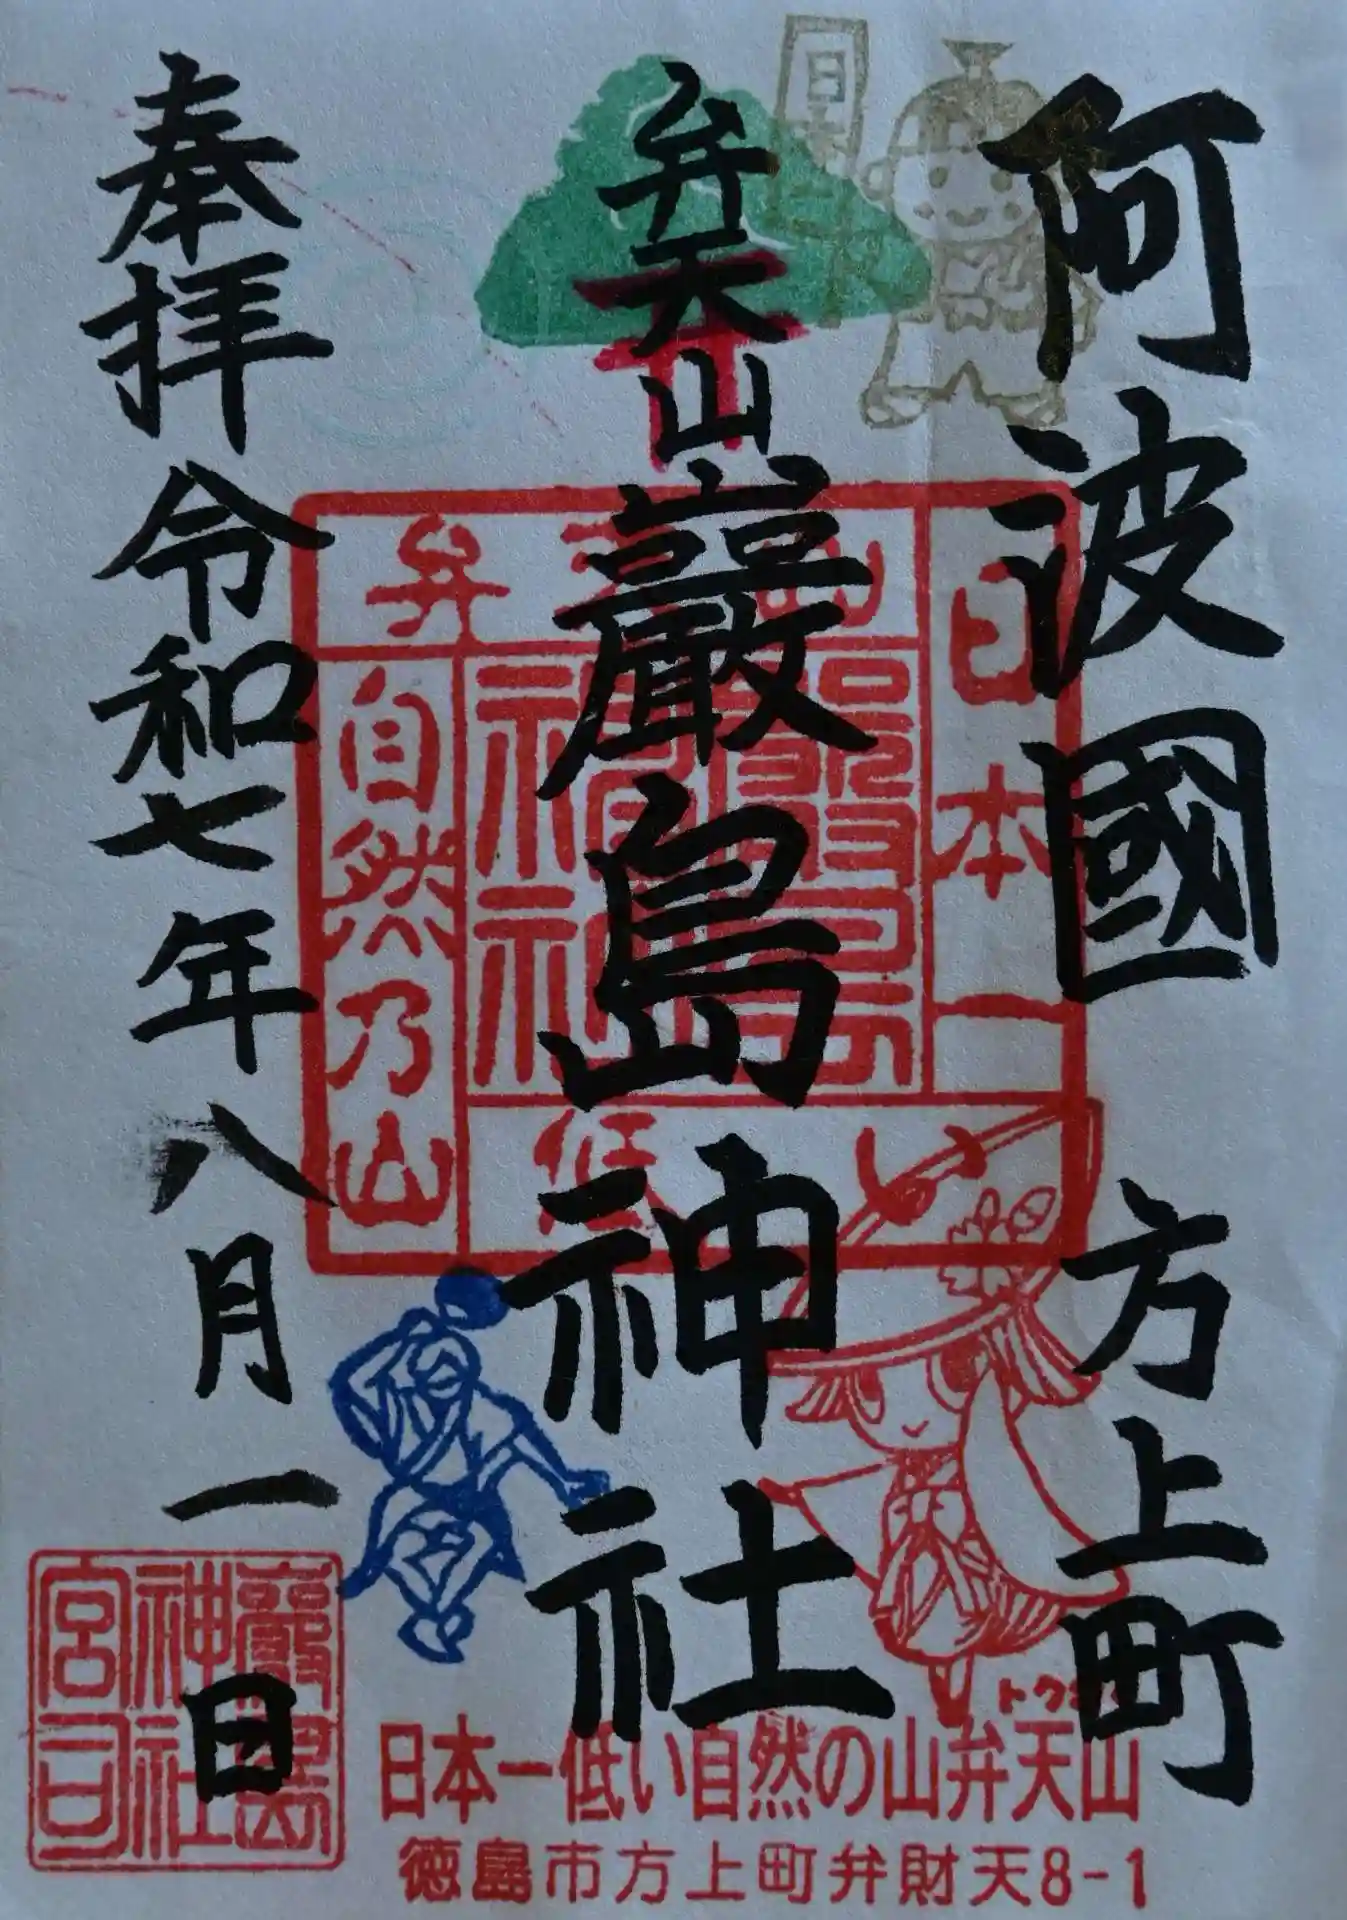 阿波國 方上町
弁天山 巖島神社
奉拝 令和七年八月一日
弁天山
日本一
低い
自然乃山
巖島神社
巖島神社宮司
日本一低い自然の山弁天山
徳島市方上町弁財天8-1